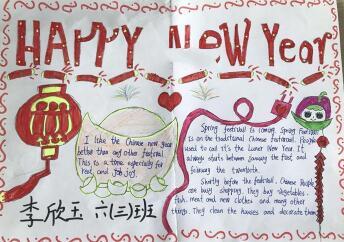 HAPPY NEW YeaR
I like the Chinese new year
better than any other festival.
This is a time especially for
real and joy.
Spring festival is coming. Spring Festival
is on the traditional Chinese festival. People
used to call it's the Lunar New Year. It
always starts between January the first and
february the twentieth.
Shortly before the festival, Chinese People
are busy shopping. They buy vegetables,
fish, meat and new clothes and many other
things. They clean the houses and decorate them
李欣玉 六(三)班